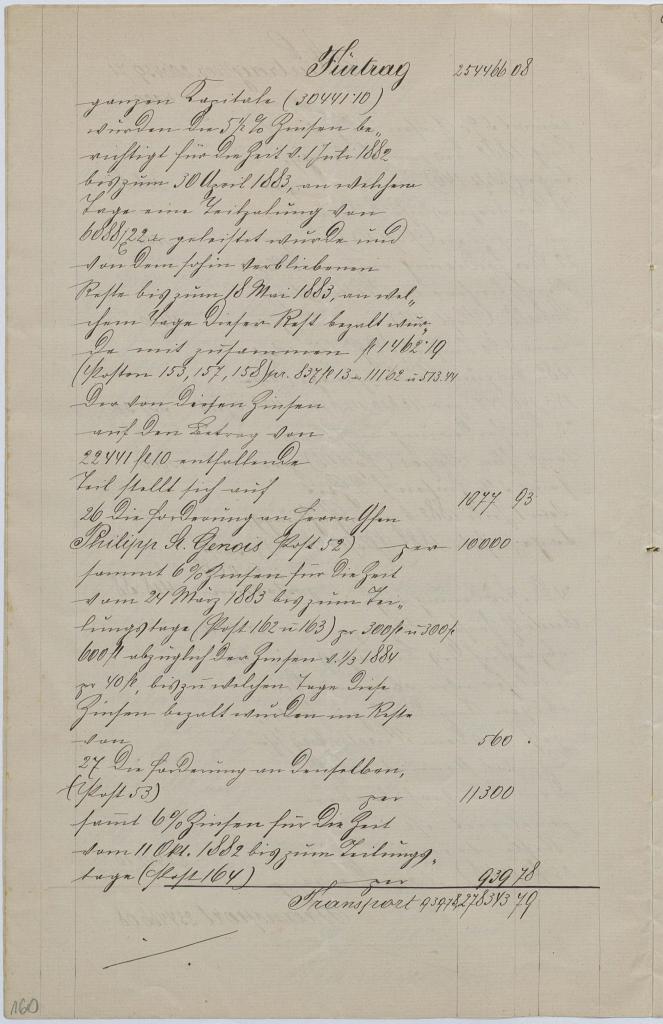 Fürtrag 254466 08
ganzen Kapitale (30441·10)
wurden die 5½% Zinsen be„
richtigt für die Zeit v. 1 Juli 1882
bis zum 30 April 1883, an welchem
Tage eine Teilzalung von
6088/22 geleistet wurde und
von dem sohin verbliebenen
Reste bis zum 18 Mai 1883, an wel„
chem Tage dieser Rest bezalt wur„
de mit zusammen fl 1462·19
(Posten 153, 157, 158) pr. 837 fl 13 111·62 u 513.44
Der von diesen Zinsen
auf den Betrag von
22441 fl 10 entfallende
Teil stellt sich auf 1077 93
26 Die Forderung an Herrn
Philipp A. Genois (Post 52) per 10000
sammt 6% Zinsen für die Zeit
vom 24 März 1883 bis zum Tei„
lungstage (Post 162 u 163) pr 300 fl u 300 fl
600 fl abzüglich der Zinsen v. 1/3 1884
pr 40 fl, bis zu welchen Tage diese
Zinsen bezalt wurden im Reste
von 560 ·
27 Die Forderung an denselben,
(Post 53) per 11300
sammt 6% Zinsen für die Zeit
vom 11 Okt. 1882 bis zum Teilungs„
tage (Post 164) per 939 78
Transport 939,78, 278343 79
160